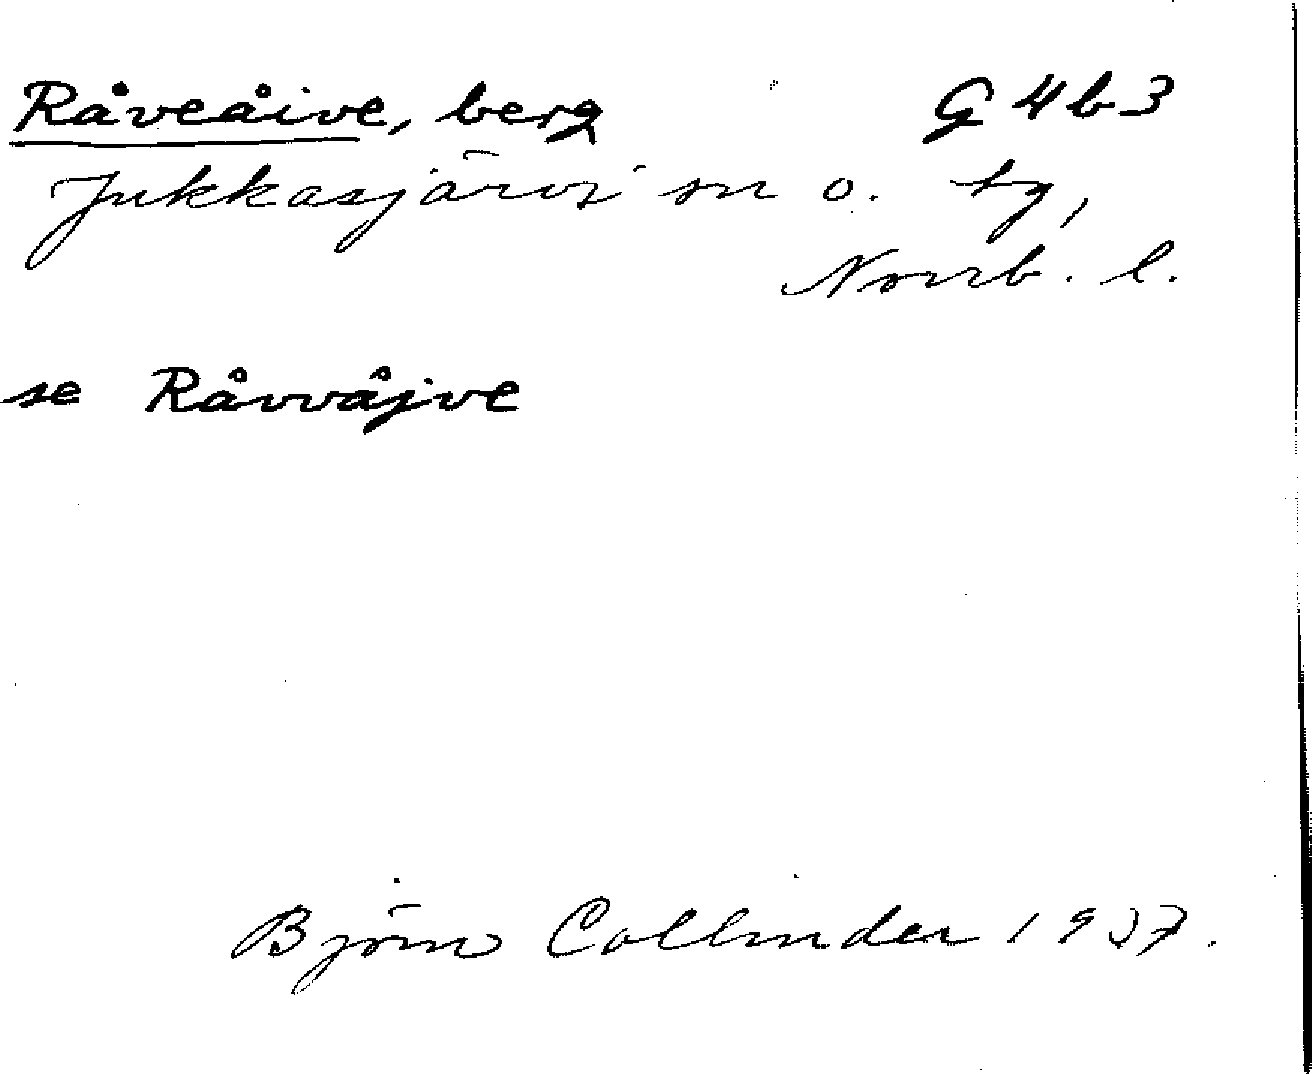 Råveåive, berg G 4 b 3
Jukkasjärvi sn o. tg,
Norrb. l.
se Råvvåjve
Björn Collinder 1937.